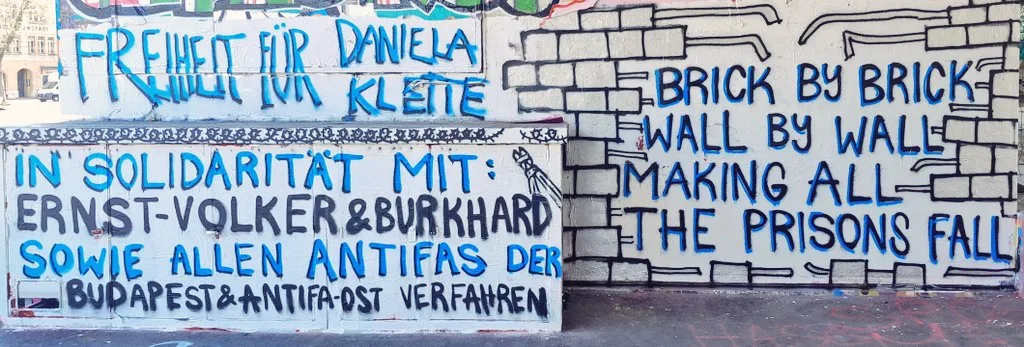 FREIHEIT FÜR DANIELA
KLETTE
IN SOLIDARITÄT MIT:
ERNST-VOLKER & BURKHARD
SOWIE ALLEN ANTIFAS DER
BUDAPEST & ANTIFA-OST VERFAHREN
BRICK BY BRICK
WALL BY WALL
MAKING ALL
THE PRISONS FALL